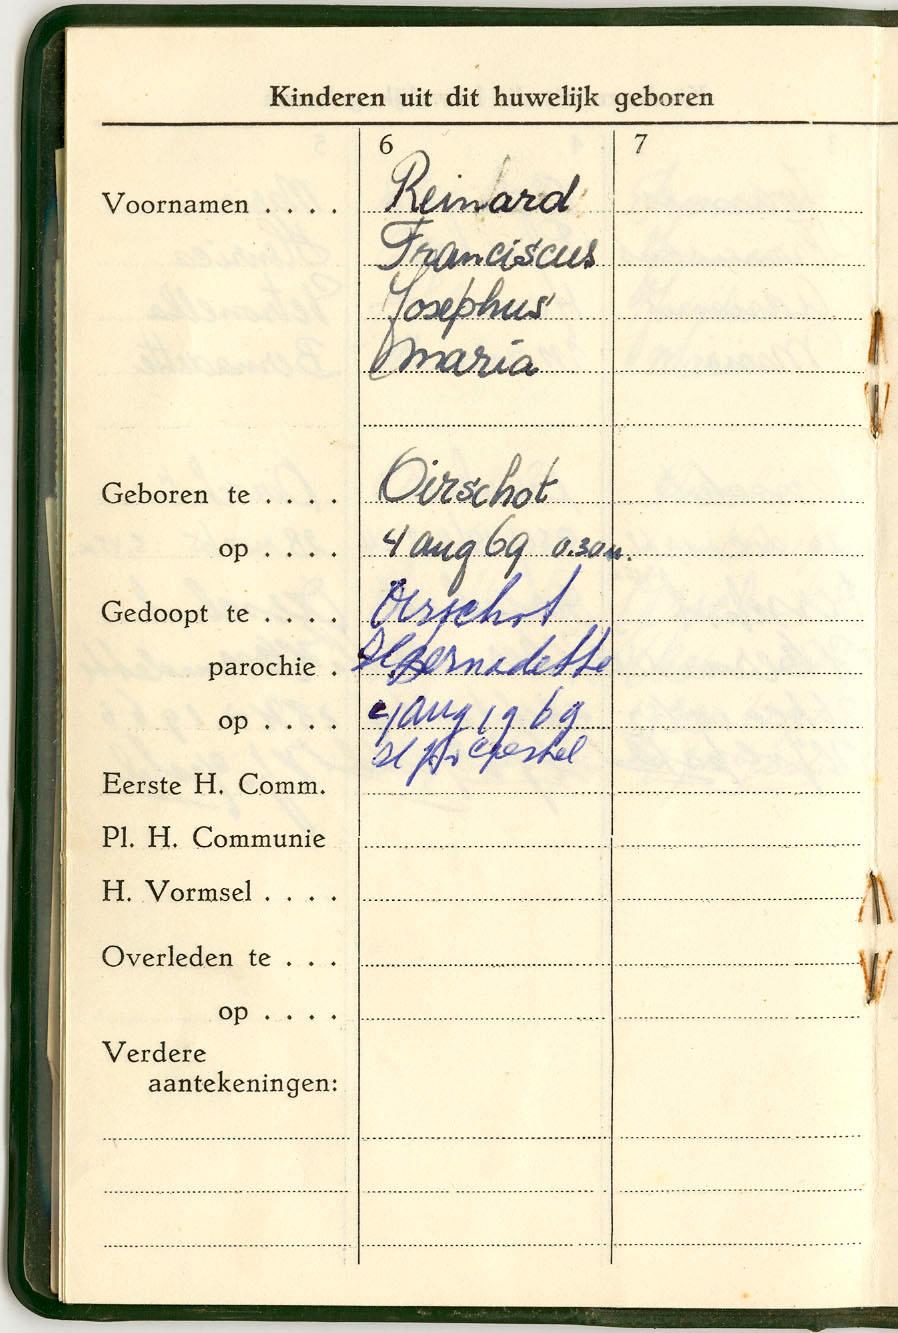 Kinderen uit dit huwelijk geboren
6 7
Voornamen . . . . Reinard
Franciscus
Josephus
Maria
Geboren te . . . . Oirschot
op . . . . 4 aug 69 0.30 u.
Gedoopt te . . . . Oirschot
parochie . H. Bernadette
op . . . . 4 aug 1969
Eerste H. Comm.
Pl. H. Communie
H. Vormsel . . . .
Overleden te . . .
op . . . .
Verdere
aantekeningen: